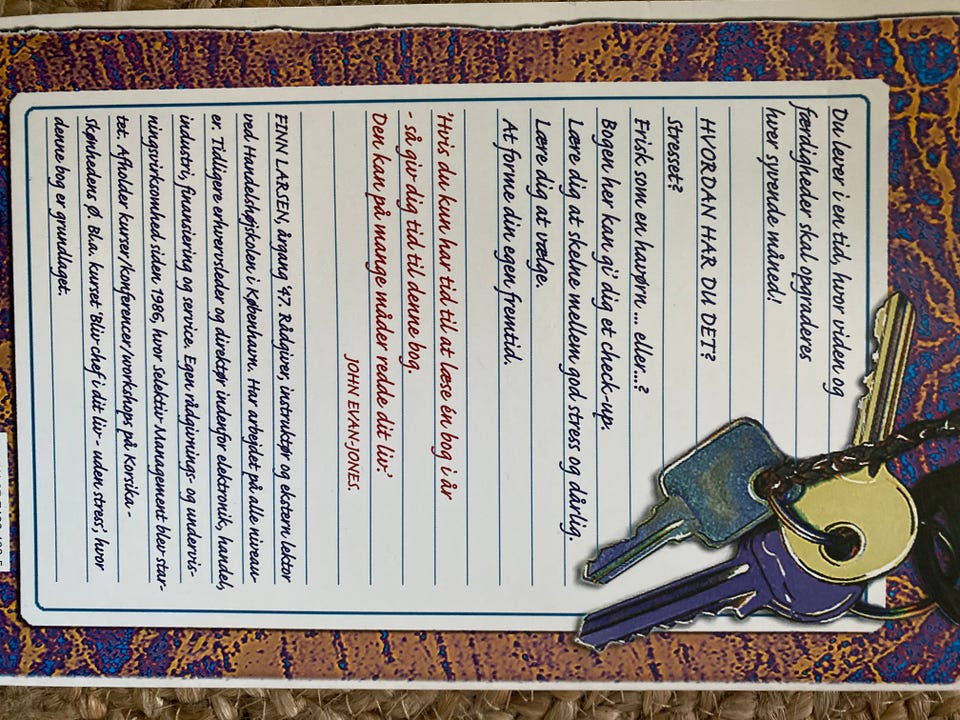 Du lever i en tid, hvor viden og
færdigheder skal opgraderes
hver syvende måned!
HVORDAN HAR DU DET?
Stresset?
Frisk som en havørn ... eller...?
Bogen her kan gi' dig et check-up.
Lære dig at skelne mellem god stress og dårlig.
Lære dig at vælge.
At forme din egen fremtid.
'Hvis du kun har tid til at læse én bog i år
- så giv dig tid til denne bog.
Den kan på mange måder redde dit liv.'
JOHN EVAN-JONES.
FINN LARSEN, årgang '47. Rådgiver, instruktør og ekstern lektor
ved Handelshøjskolen i København. Har arbejdet på alle niveau-
er. Tidligere erhvervsleder og direktør indenfor elektronik, handel,
industri, finansiering og service. Egen rådgivnings- og undervis-
ningsvirksomhed siden 1986, hvor Selektiv Management blev star-
tet. Afholder kurser/konferencer/workshops på Korsika -
Skønhedens Ø. Bl.a. kurset 'Bliv chef i dit liv - uden stress', hvor
denne bog er grundlaget.